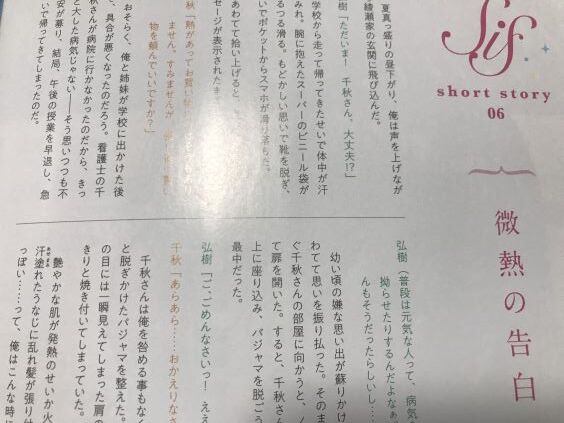 Sif
short story
06
微熱の告白
夏真っ盛りの昼下がり、俺は声を上げなが
綾瀬家の玄関に飛び込んだ。
樹「ただいま! 千秋さん、大丈夫!?」
学校から走って帰ってきたせいで体中が汗
みれ。腕に抱えたスーパーのビニール袋が
るつる滑る。もどかしい思いで靴を脱ぎ、
いでポケットからスマホが滑り落ちた。
あわてて拾い上げると、
セージが表示されたま
千秋「熱があってお買い
ません。すみませんが
物を頼んでいいですか?」
おそらく、俺と姉妹が学校に出かけた後
、具合が悪くなったのだろう。看護士の千
秋さんが病院に行かなかったのだから、きっ
と大した病気じゃない――そう思いつつも不
安が募り、結局、午後の授業を早退し、急
いで帰ってきてしまったのだ。
弘樹(普段は元気な人って、病気
拗らせたりするんだよなぁ
んもそうだったらしいし…
幼い頃の嫌な思い出が蘇りかけ
わてて思いを振り払った。そのま
ぐ千秋さんの部屋に向かうと、ノ
て扉を開いた。すると、千秋さん
上に座り込み、パジャマを脱ごう
最中だった。
弘樹「ご、ごめんなさいっ! ええ
千秋「あらあら……おかえりなさ
千秋さんは俺を咎める事もなく
と脱ぎかけたパジャマを整えた。
の目には一瞬見えてしまった肩の
きりと焼き付いてしまっていた。
艶やかな肌が発熱のせいか火
汗塗れたうなじに乱れ髪が張り付
っぽい……って、俺はこんな時に